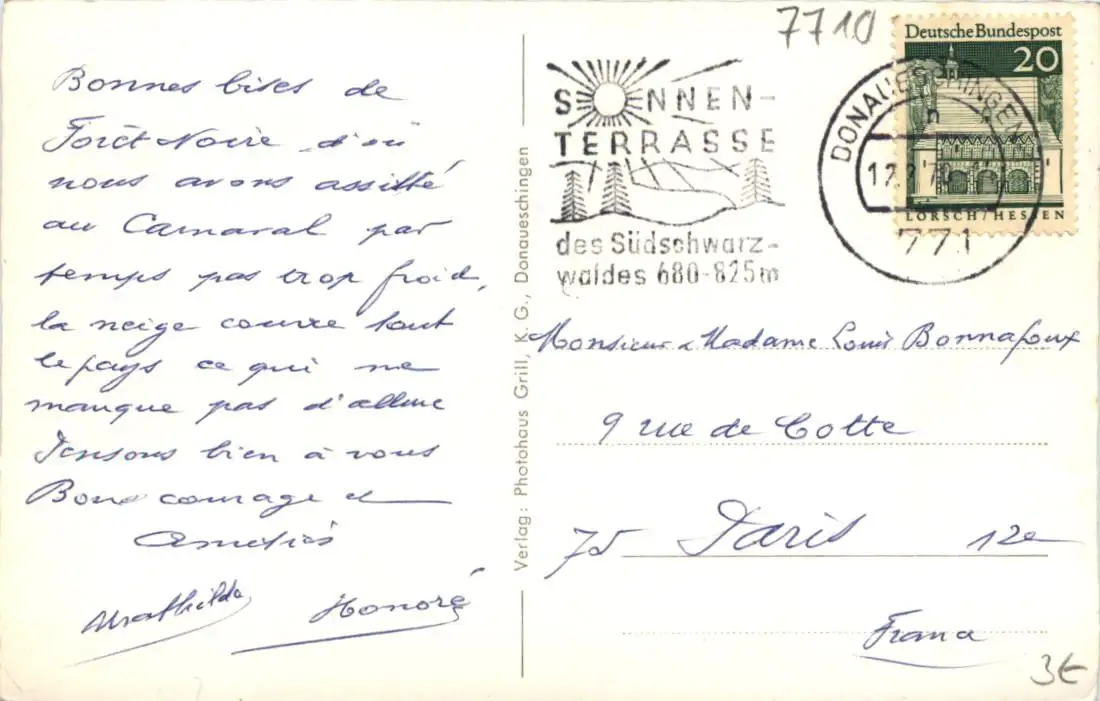 Bonnes bises de
Forêt Noire d'où
nous avons assisté
au Carnaval par
temps pas trop froid,
la neige couvre tout
le pays ce qui ne
manque pas d'allure
Pensons bien à vous
Bons courage et
Amitiés
Mathilde Honoré
Verlag: Photohaus Grill, K. G., Donaueschingen
7710
SONNEN-
TERRASSE
des Südschwarz-
waldes 680-825m
Deutsche Bundespost
20
LORSCH/HESSEN
DONAUESCHINGEN
n
771
Monsieur & Madame Louis Bonnafoux
9 rue de Cotte
75 Paris 12e
France
3€